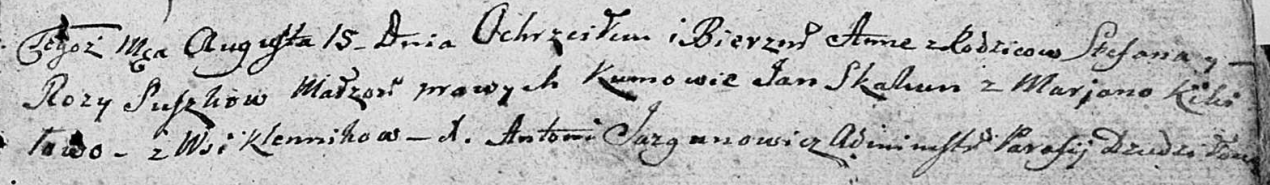 Tegoż Mca Augusta 15 - Dnia Ochrzciłem i Bierzmł Anne z Rodzicow Stefana y -
Rozy Suszkow Małżon prawych Kumowie Jan Skakun z Marjano
- z Wsi Klennikow - X. Antoni Jazgunowicz Administr Parafij